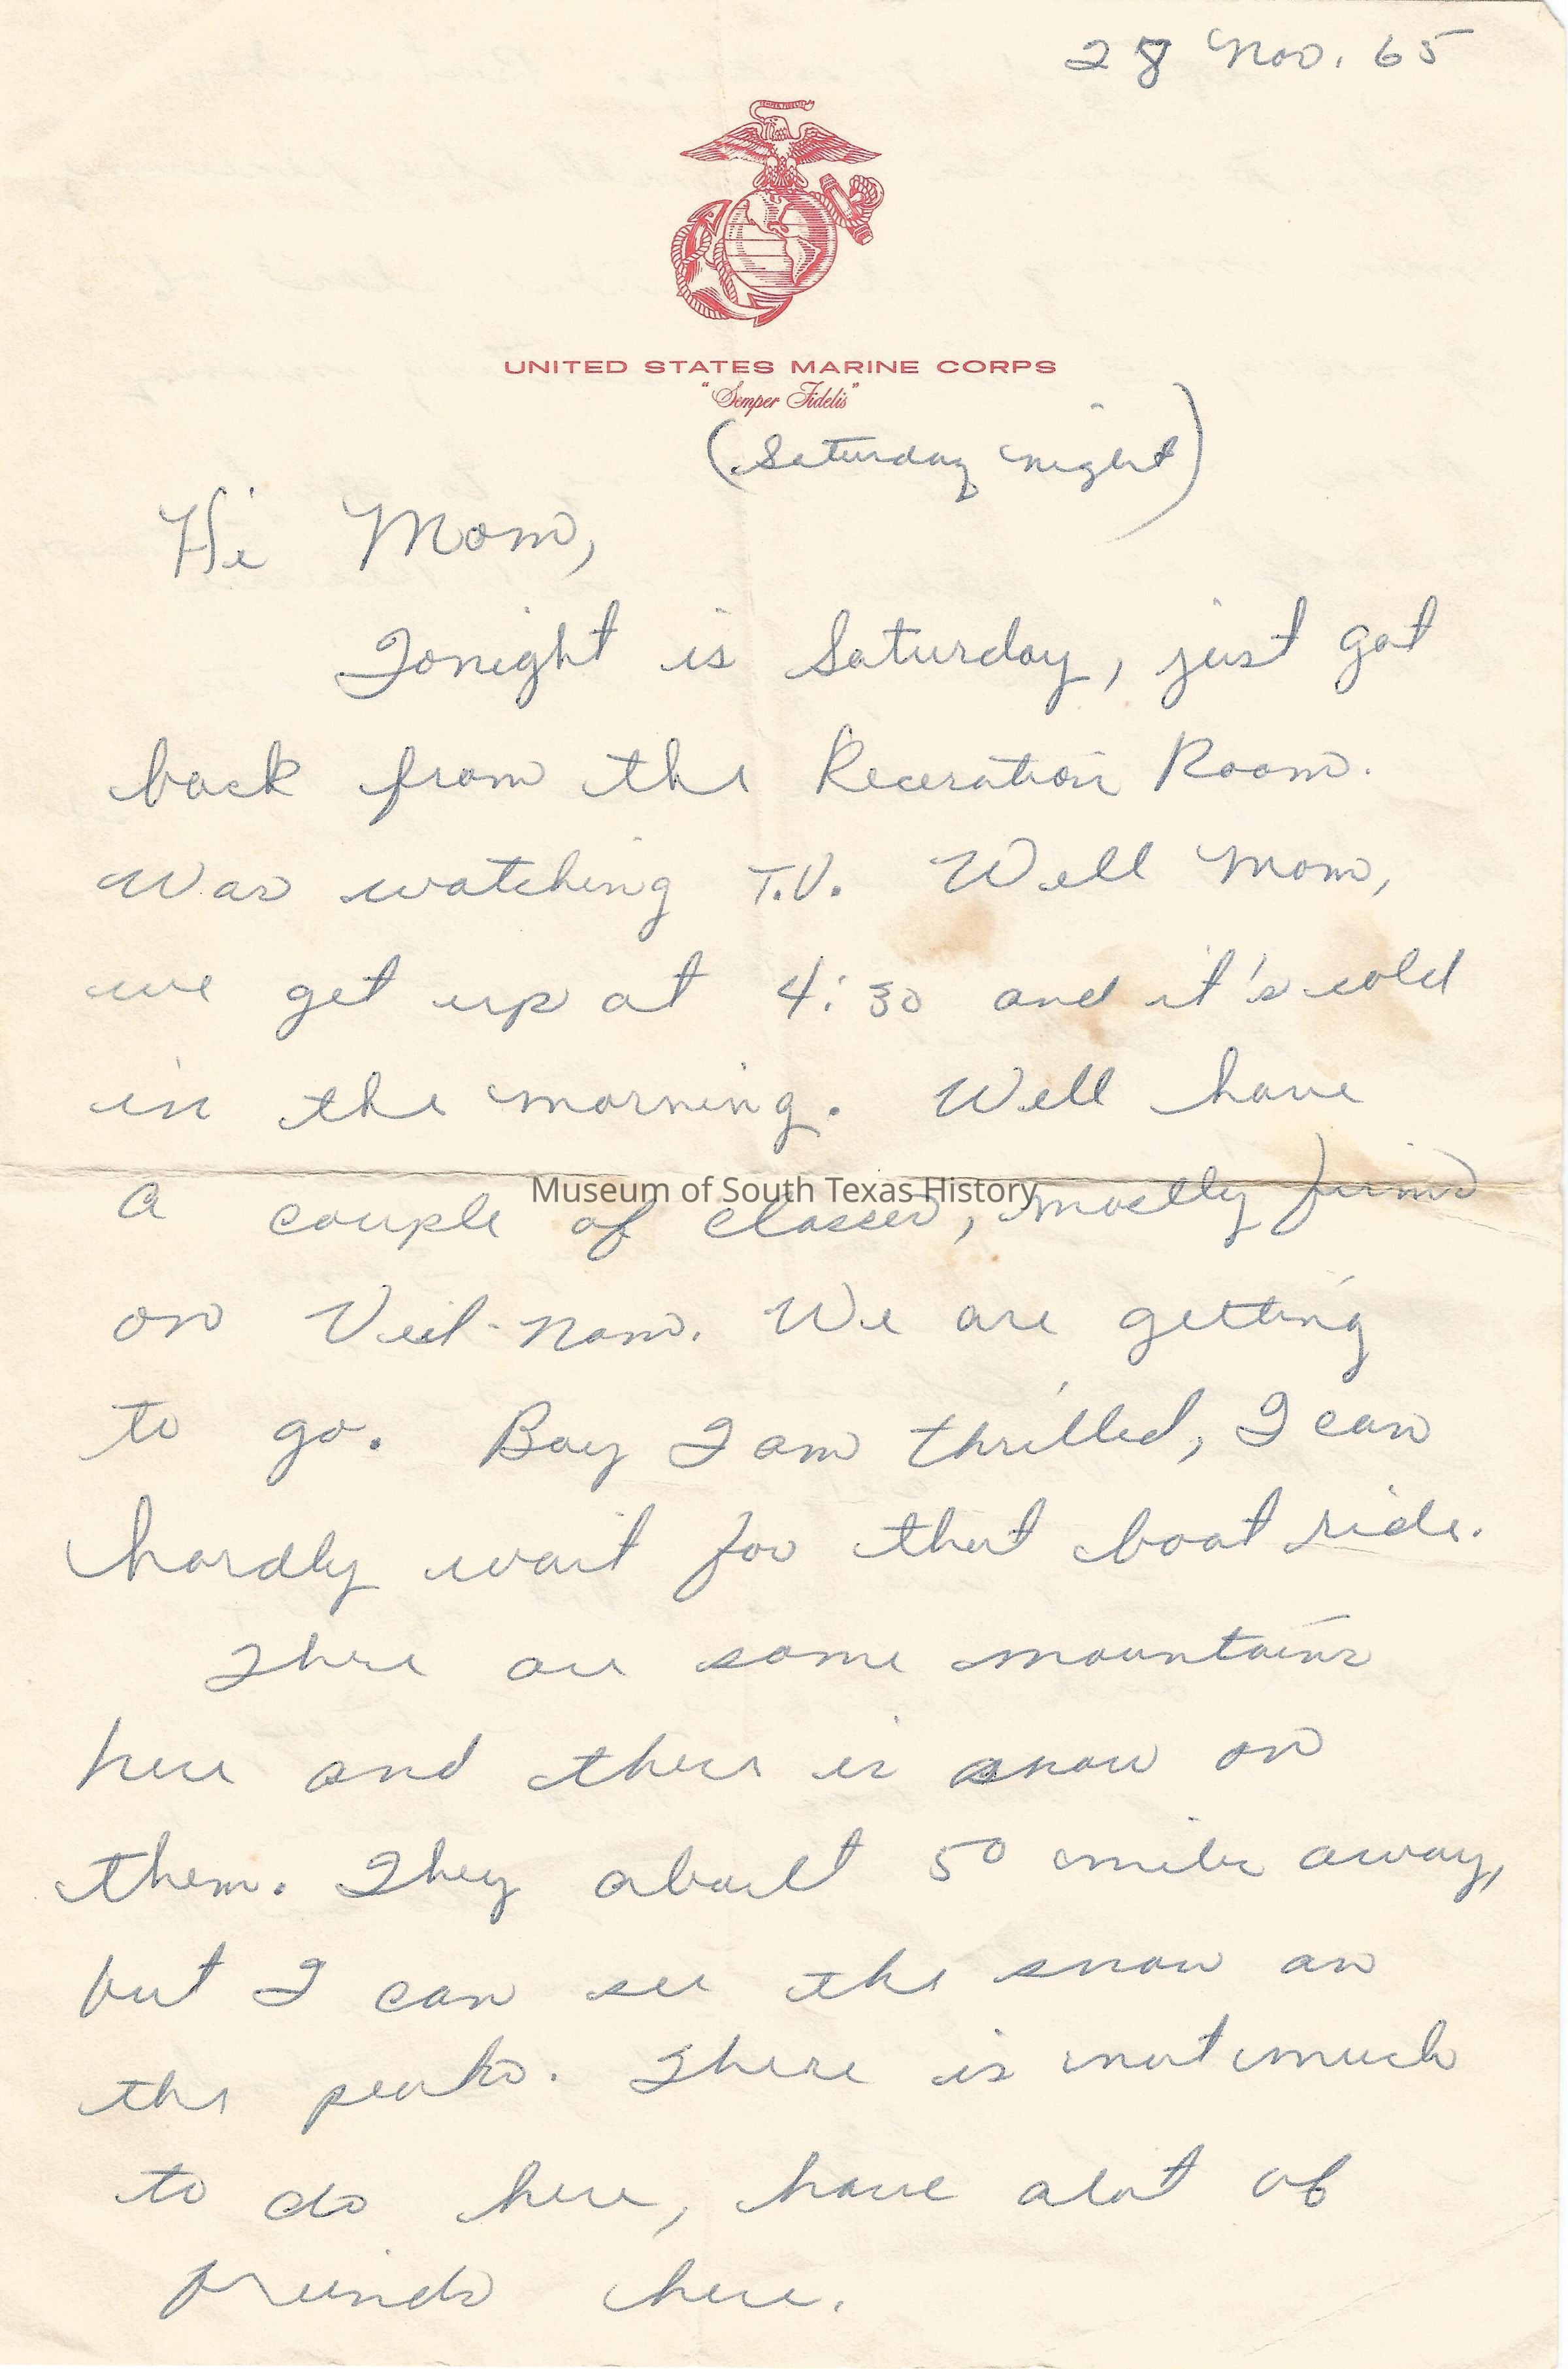 28 Nov. 65
SEMPER FIDELIS
UNITED STATES MARINE CORPS
"Semper Fidelis"
(Saturday night)
Hi Mom,
Tonight is Saturday, just got
back from the Receration Room.
Was watching T.V. Well Mom,
we get up at 4:30 and it's cold
in the morning. Well have
a couple of classes, mostly
Museum of South Texas History
on Veit-nam. We are getting
to go. Boy I am thrilled, I can
hardly wait for that boat ride.
There are some mountains
here and there is snow on
them. They about 50 miles away,
but I can see the snow on
the peaks. There is not much
to do here, have alot of
freinds here.